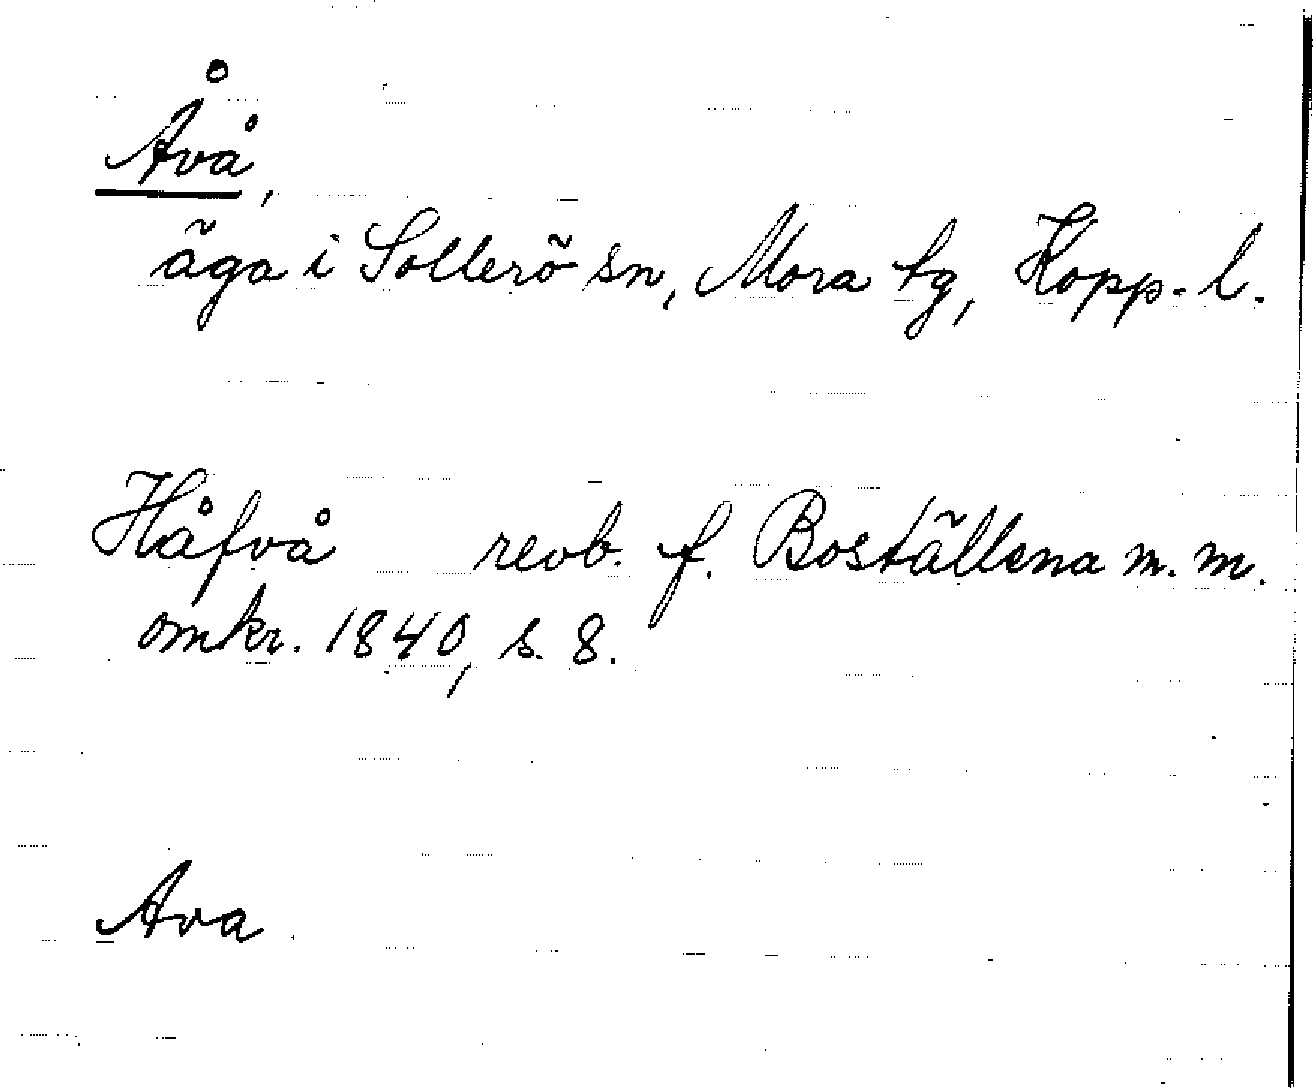 Åvå,
äga i Sollerö sn, Mora tg, Kopp. l.
Håfvå revb. f. Boställena m. m.
omkr. 1840, s. 8.
Ava